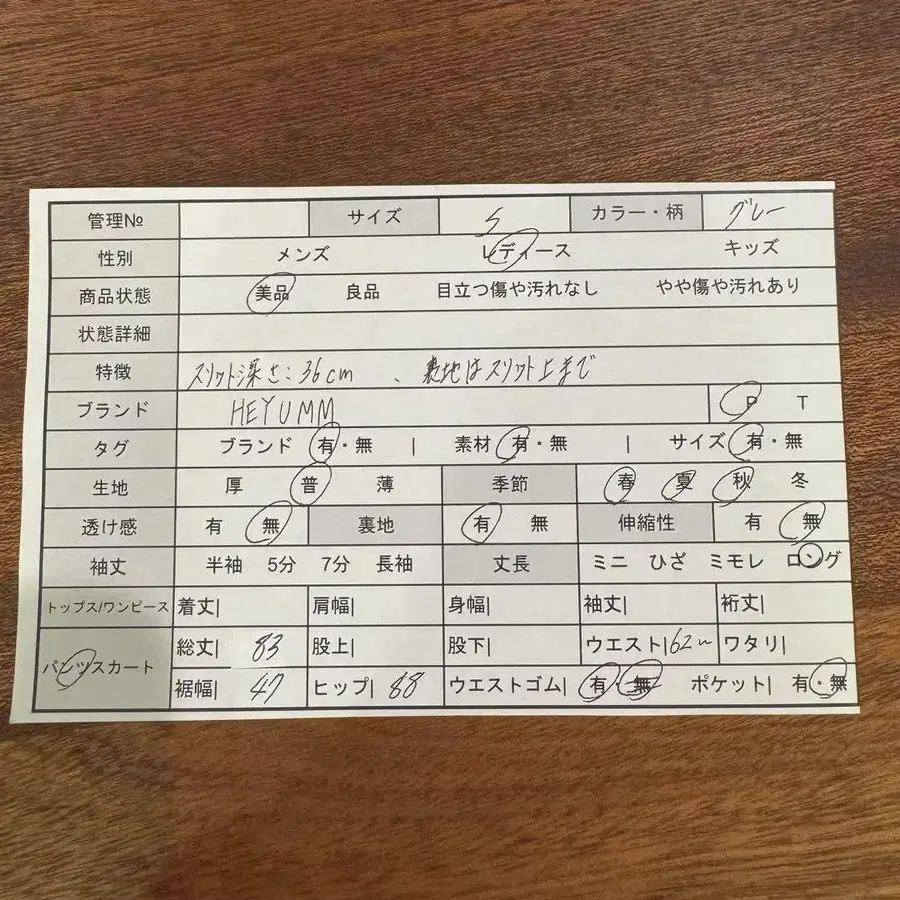 管理№ サイズ S カラー・柄 グレー
性別 メンズ レディース キッズ
商品状態 美品 良品 目立つ傷や汚れなし やや傷や汚れあり
状態詳細
特徴 スリット深さ:36cm 、裏地はスリット上まで
ブランド HEYUMM P T
タグ ブランド 有・無 | 素材 有・無 | サイズ 有・無
生地 厚 普 薄 季節 春 夏 秋 冬
透け感 有 無 裏地 有 無 伸縮性 有 無
袖丈 半袖 5分 7分 長袖 丈長 ミニ ひざ ミモレ ロング
トップス/ワンピース 着丈| 肩幅| 身幅| 袖丈| 裄丈|
パンツスカート 総丈| 83 股上| 股下| ウエスト| 62〜 ワタリ|
裾幅| 47 ヒップ| 88 ウエストゴム| 有・無 ポケット| 有・無